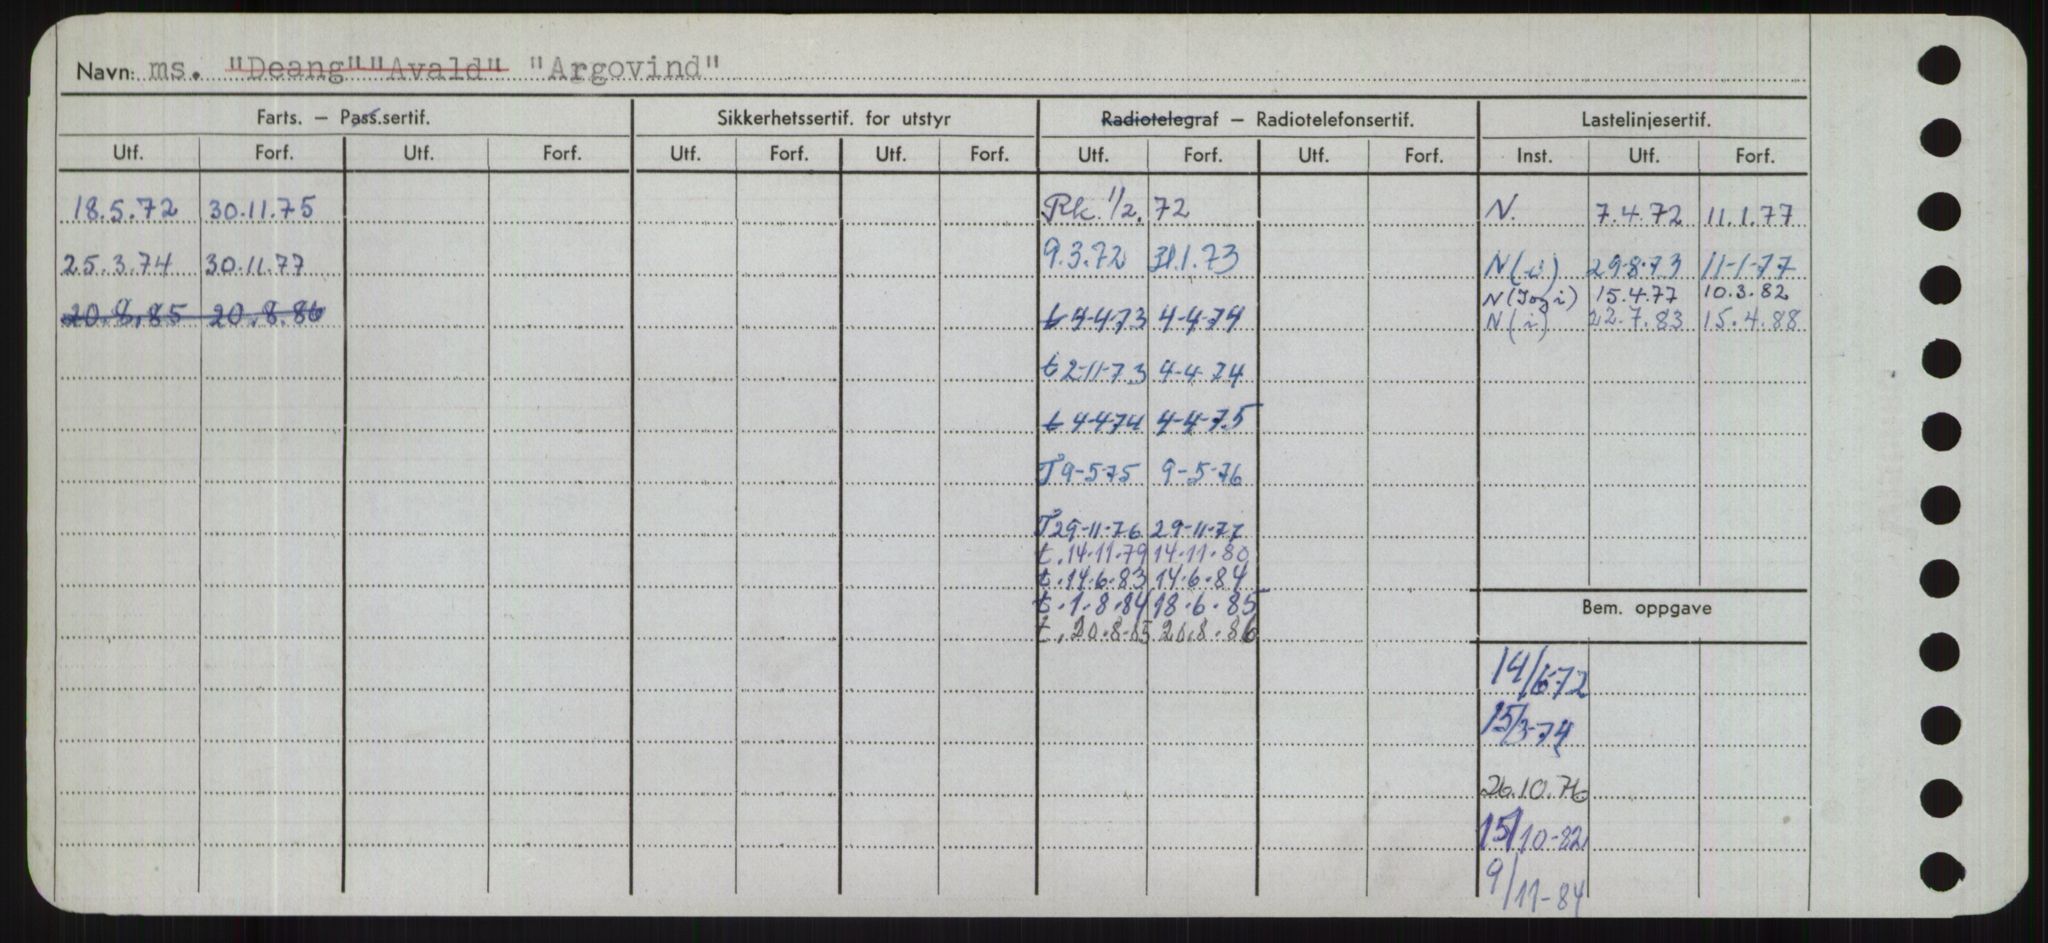 Navn: ms. "Deang" "Avald" "Argovind"
Farts. – Pass.sertif. Sikkerhetssertif. for utstyr Radiotelegraf – Radiotelefonsertif. Lastelinjesertif.
Utf. Forf. Utf. Forf. Utf. Forf. Utf. Forf. Utf. Forf. Utf. Forf. Inst. Utf. Forf.
18.5.72 30.11.75 Rk. 1/2. 72 N. 7.4.72 11.1.77
25.3.74 30.11.77 9.3.72 31.1.73 N(i) 29-8-73 11-1-77
N(Iogi) 15.4.77 10.3.82
20.8.85 20.8.86 t 4-4-73 4-4-74 N(i) 22.7.83 15.4.88
t 2-11-73 4-4-74
t 4-4-74 4-4-75
T 9-5-75 9-5-76
T 29-11-76 29-11-77
t. 14.11.79 14.11.80
t. 14.6.83 14.6.84
t. 1.8.84 18.6.85
t. 20.8.85 20.8.86
Bem. oppgave
14/6-72
15/3-74
26.10.76
15/10-82
9/11-84